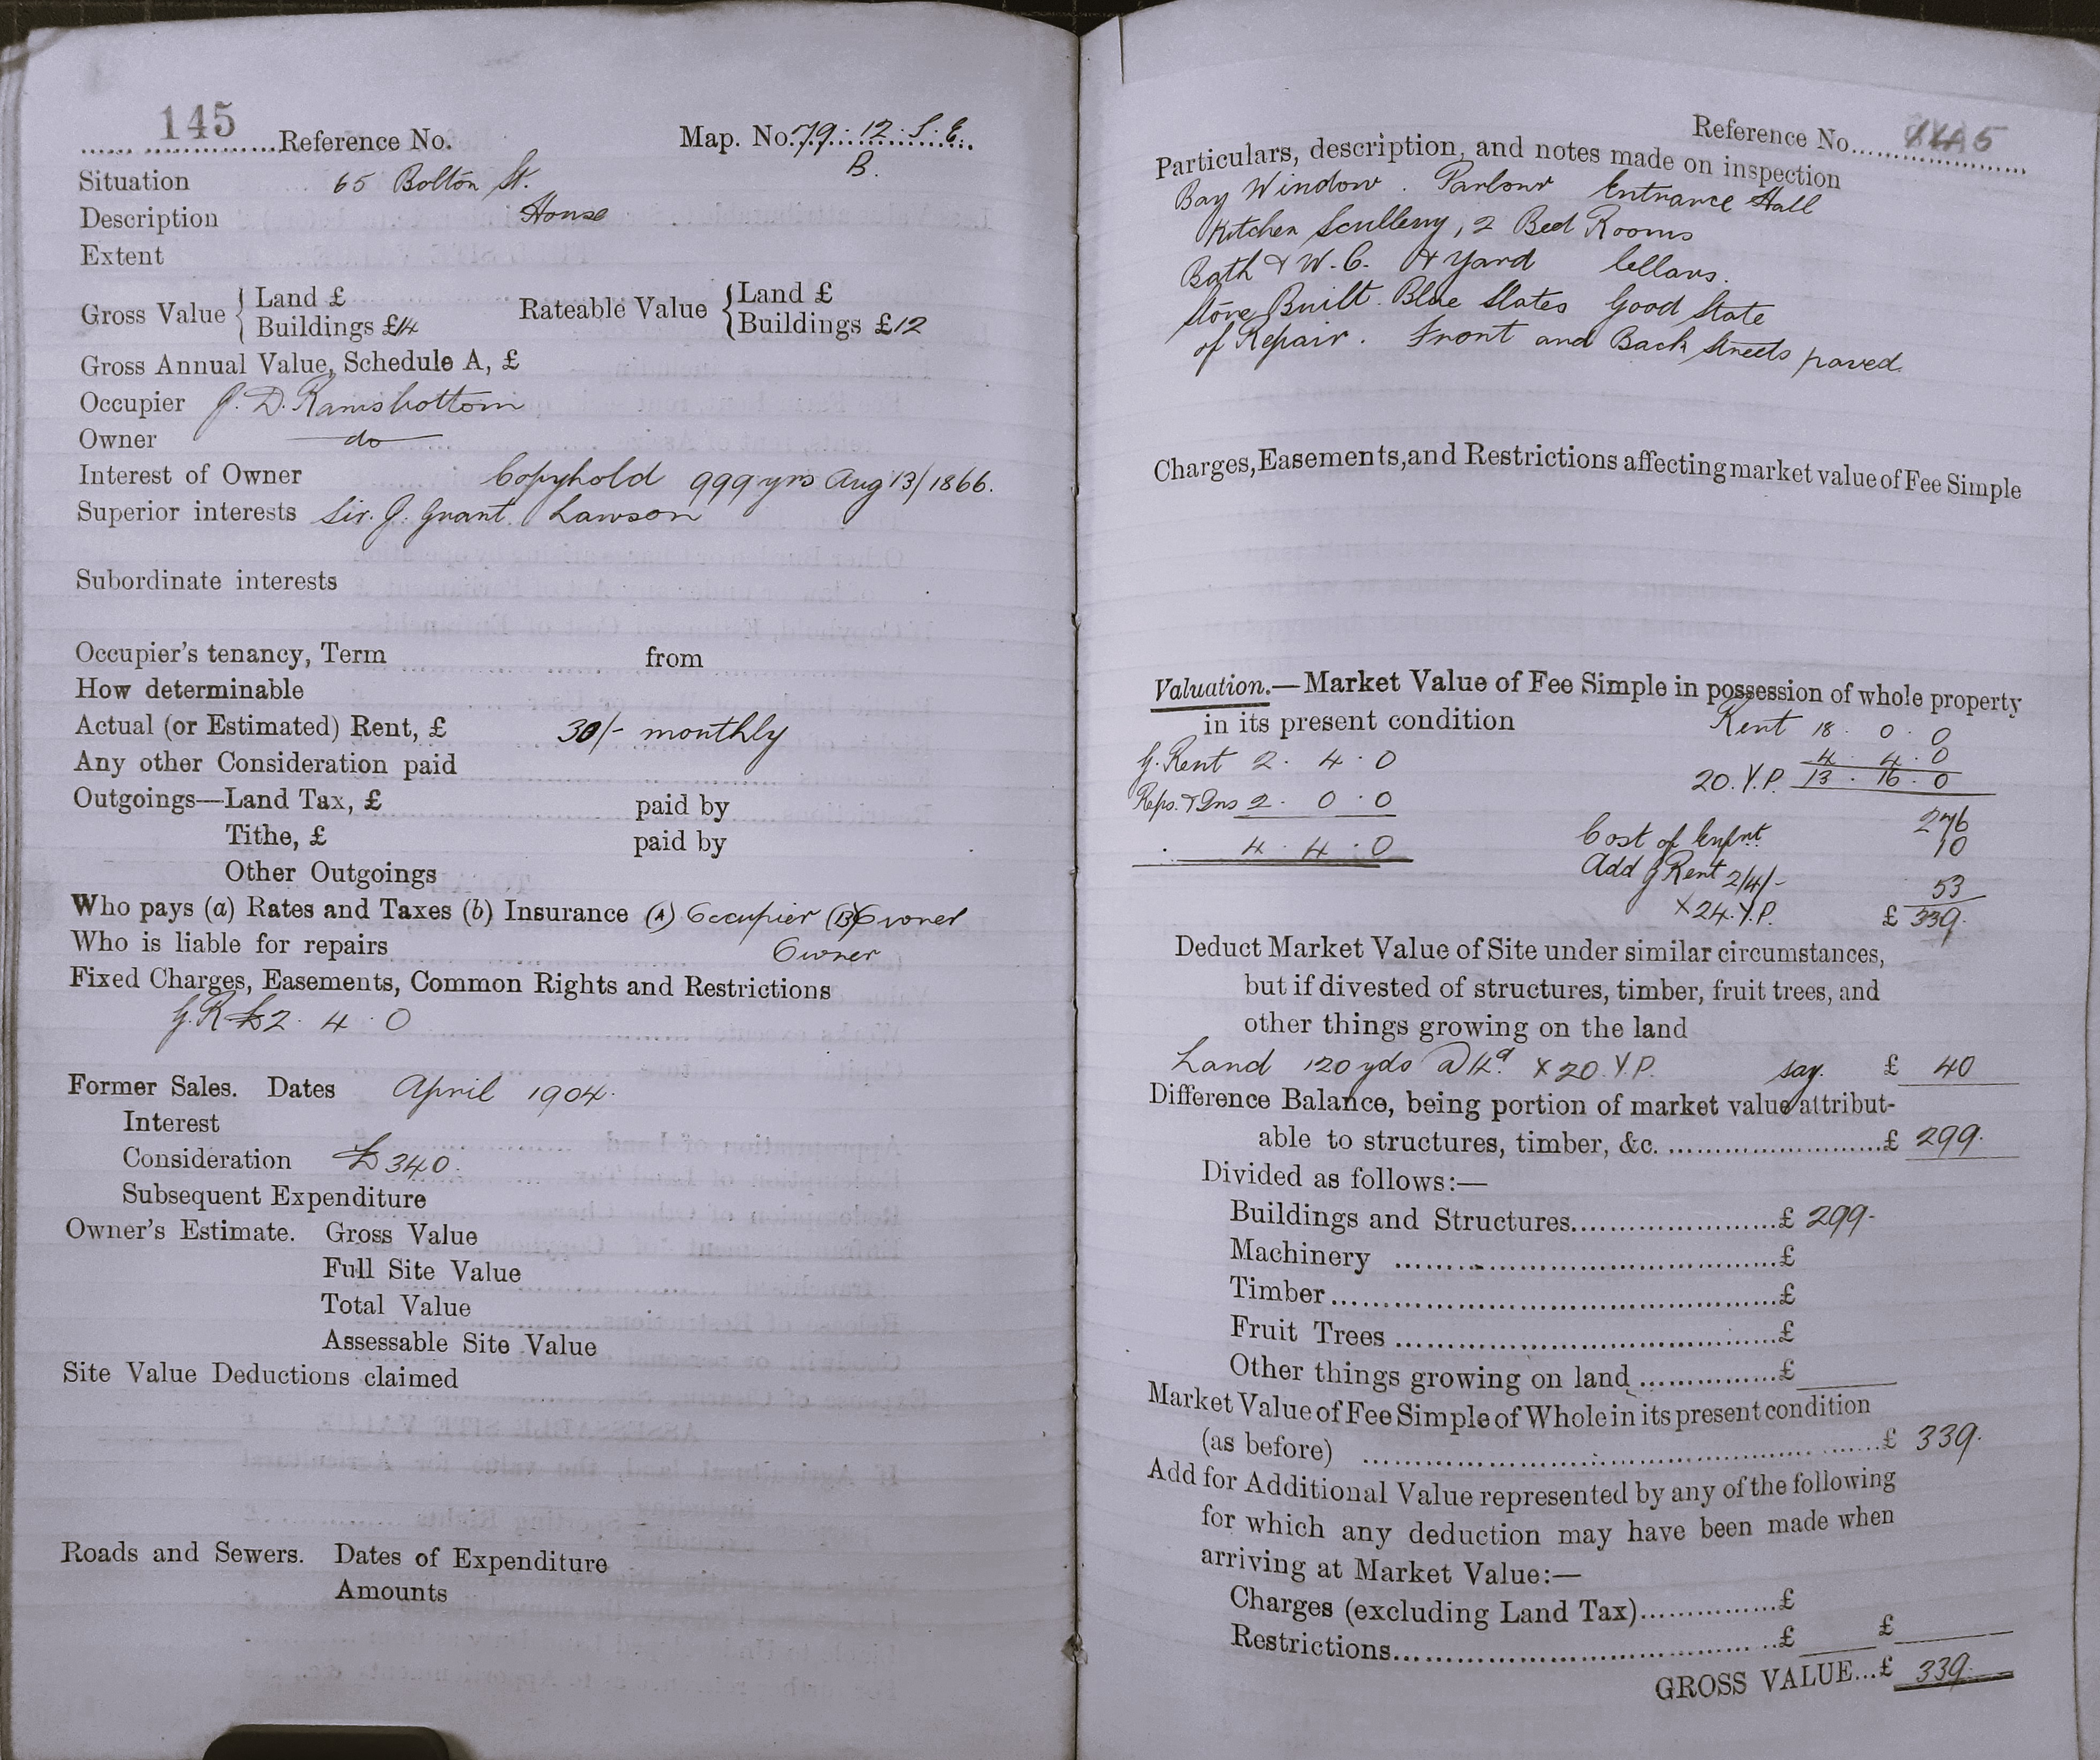 145 Reference No. Map. No. 79 : 12 : S. E.
B.
Situation 65 Bolton St.
Description House
Extent
Gross Value { Land £ Rateable Value { Land £
Buildings £14 Buildings £12
Gross Annual Value, Schedule A, £
Occupier J. D. Ramsbottom
Owner do
Interest of Owner Copyhold 999 yrs Aug 13/1866.
Superior interests Sir. J. Grant Lawson
Subordinate interests
Occupier's tenancy, Term from
How determinable
Actual (or Estimated) Rent, £ 30/- monthly
Any other Consideration paid
Outgoings—Land Tax, £ paid by
Tithe, £ paid by
Other Outgoings
Who pays (a) Rates and Taxes (b) Insurance (A) Occupier (B) Owner
Who is liable for repairs Owner
Fixed Charges, Easements, Common Rights and Restrictions
G. R £2 . 4 . 0
Former Sales. Dates April 1904.
Interest
Consideration £340.
Subsequent Expenditure
Owner's Estimate. Gross Value
Full Site Value
Total Value
Assessable Site Value
Site Value Deductions claimed
Roads and Sewers. Dates of Expenditure
Amounts
Reference No. 145
Particulars, description, and notes made on inspection
Bay Window . Parlour Entrance Hall
Kitchen Scullery, 2 Bed Rooms
Bath & W. C. & Yard Cellars.
Stone Built. Blue Slates Good State
of Repair. Front and Back Streets paved.
Charges, Easements, and Restrictions affecting market value of Fee Simple
Valuation.—Market Value of Fee Simple in possession of whole property
in its present condition Rent 18 . 0 . 0
G. Rent 2 . 4 . 0 4 . 4 . 0
Reps. & Ins 2 . 0 . 0 20. Y.P. 13 . 16 . 0
4 . 4 . 0 276
Cost of Enfnt. 10
Add G Rent 2/4/- 53
× 24. Y.P. £ 339.
Deduct Market Value of Site under similar circumstances,
but if divested of structures, timber, fruit trees, and
other things growing on the land
Land 120 yds @ 4d × 20. Y.P. say. £ 40
Difference Balance, being portion of market value attribut-
able to structures, timber, &c. £ 299.
Divided as follows:—
Buildings and Structures £ 299.
Machinery £
Timber £
Fruit Trees £
Other things growing on land £
Market Value of Fee Simple of Whole in its present condition
(as before) £ 339.
Add for Additional Value represented by any of the following
for which any deduction may have been made when
arriving at Market Value:—
Charges (excluding Land Tax) £
Restrictions £ £
GROSS VALUE...£ 339.